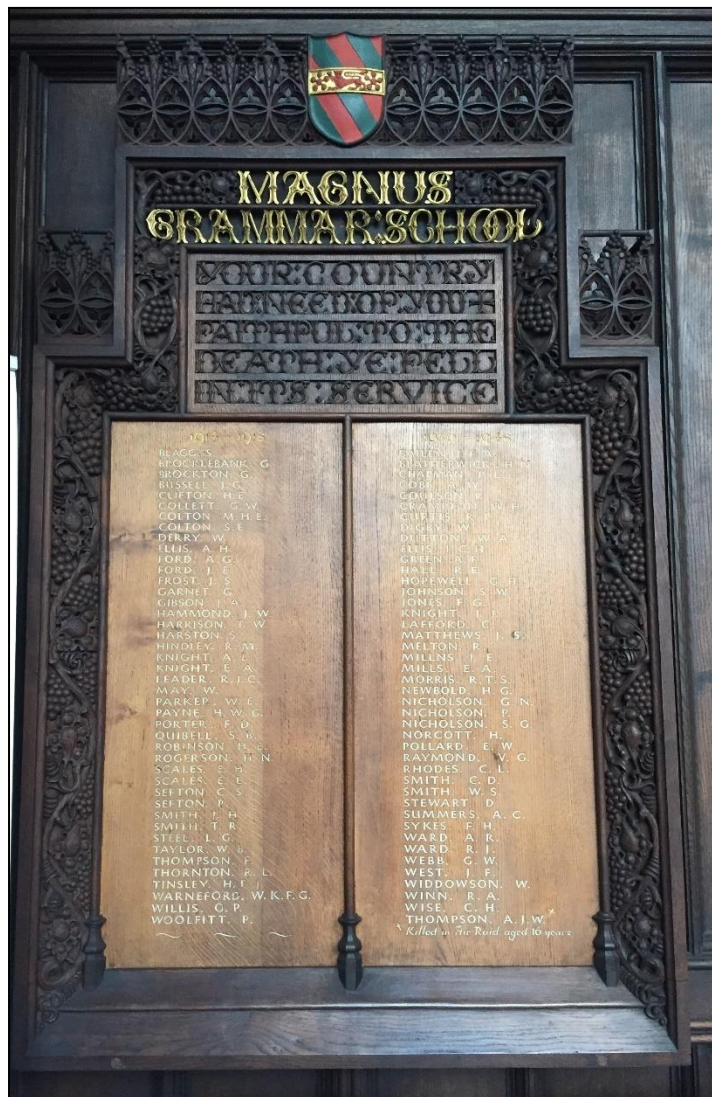 MAGNUS
GRAMMAR:SCHOOL
YOUR:COUNTRY
HAD:NEED:OF:YOU:&
FAITHFUL:TO:THE
DEATH:YE:FELL
IN:ITS:SERVICE
1914 – 1918
BLAGG, S.
BROCKLEBANK, G.
BROCKTON, G.
BUSSELL, J. G.
CLIFTON, H. E.
COLLETT, G. W.
COLTON, M. H. E.
COLTON, S. E.
DERRY, W.
ELLIS, A. H.
FORD, A. G.
FORD, J. E.
FROST, J. S.
GARNET, G.
GIBSON, J. A.
HAMMOND, J. W.
HARRISON, T. W.
HARSTON, S.
HINDLEY, R. M.
KNIGHT, A. L.
KNIGHT, E. A.
LEADER, R. J. C.
MAY, W.
PARKER, W. E.
PAYNE, H. W. G.
PORTER, F. D.
QUIBELL, S. B.
ROBINSON, H. E.
ROGERSON, H. N.
SCALES, E. H.
SCALES, E. E.
SEFTON, C. S.
SEFTON, P.
SMITH, J. H.
SMITH, T. R.
STEEL, L. G.
TAYLOR, W. B.
THOMPSON, F.
THORNTON, R. L.
TINSLEY, H. E. J.
WARNEFORD, W. K. F. G.
WILLIS, O. P.
WOOLFITT, P.
BLATHERWICK, H.
CHAPMAN
COBB
COULSON, R.
CRAMPTON, W. H.
CURTIS, R. P.
DIGBY, W.
DUTTON, W. A.
ELLIS, C. H.
GREEN, R. F.
HALL, R. E.
HOPEWELL, G. H.
JOHNSON, S. W.
JONES, F. G.
KNIGHT, I. J.
LAFFORD, C.
MATTHEWS, J. S.
MELTON, R.
MILLNS, J. E.
MILLS, E. A.
MORRIS, R. T. S.
NEWBOLD, H. G.
NICHOLSON, G. N.
NICHOLSON, P.
NICHOLSON, S. G.
NORCOTT, H.
POLLARD, E. W.
RAYMOND, V. G.
RHODES, C. L.
SMITH, C. D.
SMITH, W. S.
STEWART, D.
SUMMERS, A. C.
SYKES, F. H.
WARD, A. R.
WARD, R. J.
WEBB, G. W.
WEST, J. F.
WIDDOWSON, W.
WINN, R. A.
WISE, C. H.
THOMPSON, A. J. W. *
* Killed in Air Raid, aged 16 years